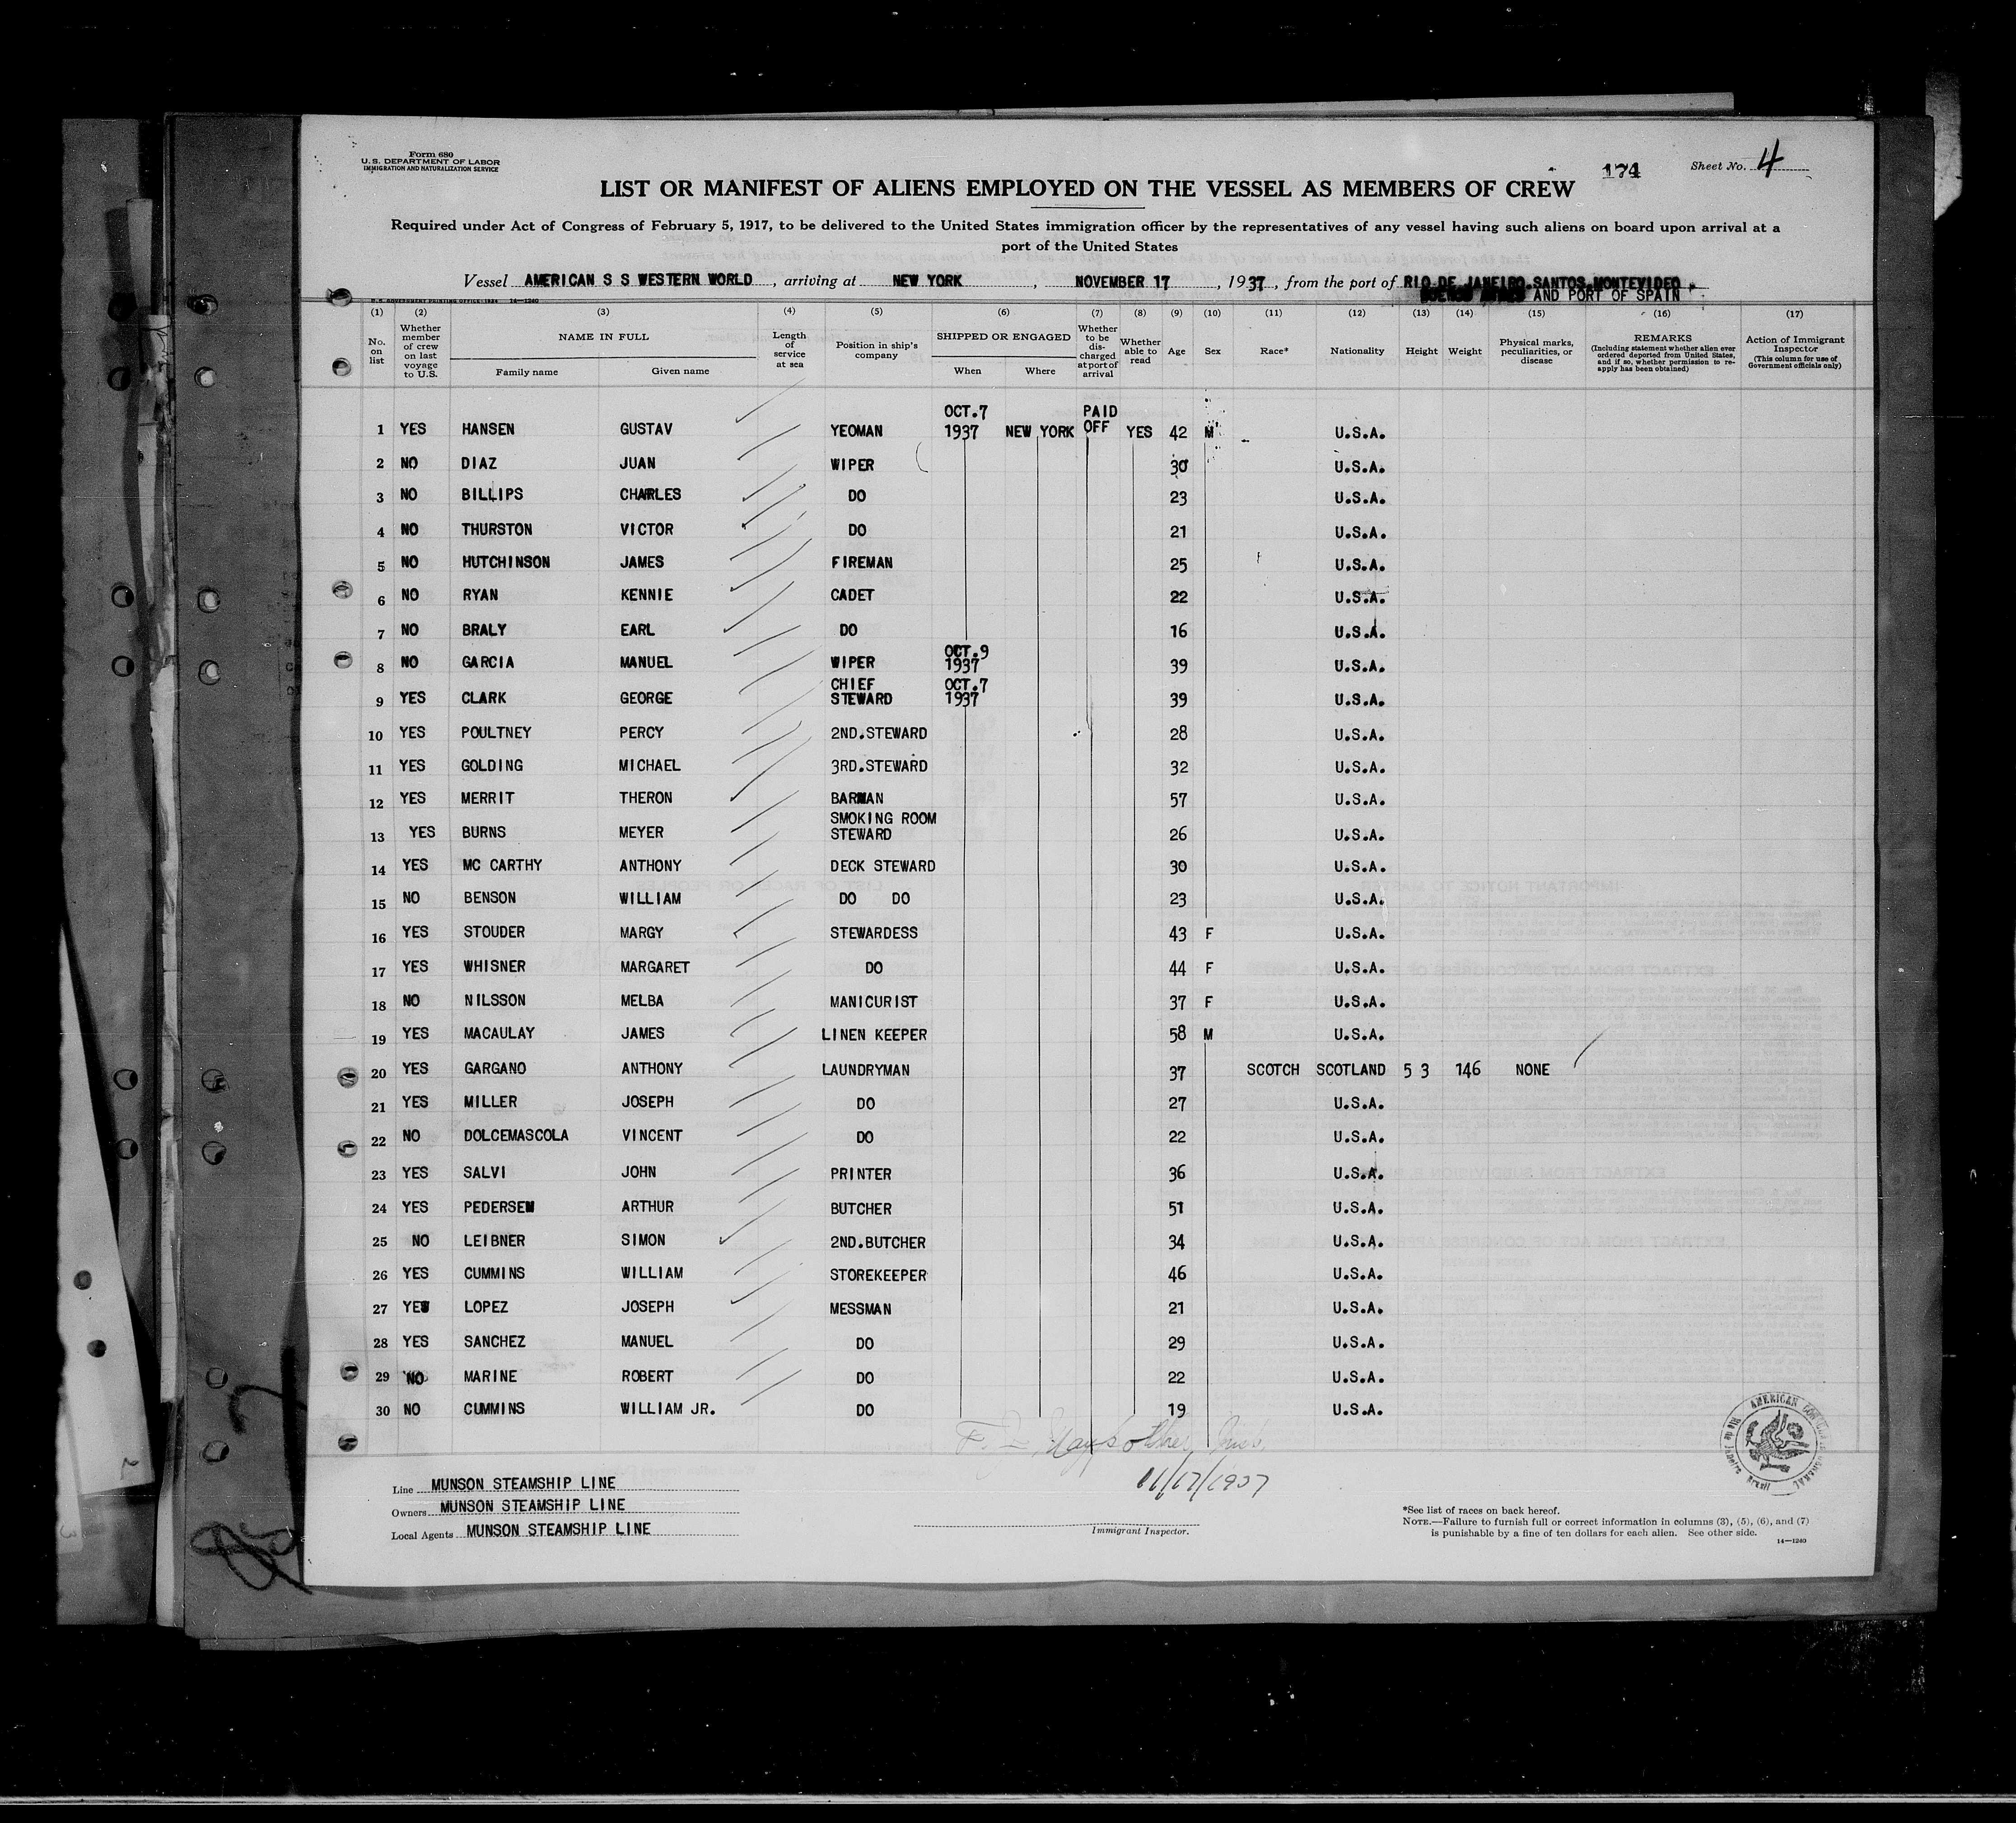 Form 680
U.S. DEPARTMENT OF LABOR
IMMIGRATION AND NATURALIZATION SERVICE
174
Sheet No. 4
LIST OR MANIFEST OF ALIENS EMPLOYED ON THE VESSEL AS MEMBERS OF CREW
Required under Act of Congress of February 5, 1917, to be delivered to the United States immigration officer by the representatives of any vessel having such aliens on board upon arrival at a
port of the United States
Vessel AMERICAN S S WESTERN WORLD, arriving at NEW YORK, NOVEMBER 17, 1937, from the port of RIO DE JANEIRO.SANTOS.MONTEVIDEO
AND PORT OF SPAIN
U.S. GOVERNMENT PRINTING OFFICE: 1934 14—1240
(1) (2) (3) (4) (5) (6) (7) (8) (9) (10) (11) (12) (13) (14) (15) (16) (17)
No. on list
Whether member of crew on last voyage to U.S.
NAME IN FULL
Family name
Given name
Length of service at sea
Position in ship's company
SHIPPED OR ENGAGED
When
Where
Whether to be discharged at port of arrival
Whether able to read
Age
Sex
Race*
Nationality
Height
Weight
Physical marks, peculiarities, or disease
REMARKS
(Including statement whether alien ever ordered deported from United States, and if so, whether permission to re-apply has been obtained)
Action of Immigrant Inspector
(This column for use of Government officials only)
OCT.7 PAID
1 YES HANSEN GUSTAV YEOMAN 1937 NEW YORK OFF YES 42 M U.S.A.
2 NO DIAZ JUAN WIPER 30 U.S.A.
3 NO BILLIPS CHARLES DO 23 U.S.A.
4 NO THURSTON VICTOR DO 21 U.S.A.
5 NO HUTCHINSON JAMES FIREMAN 25 U.S.A.
6 NO RYAN KENNIE CADET 22 U.S.A.
7 NO BRALY EARL DO 16 U.S.A.
OCT.9
8 NO GARCIA MANUEL WIPER 1937 39 U.S.A.
CHIEF OCT.7
9 YES CLARK GEORGE STEWARD 1937 39 U.S.A.
10 YES POULTNEY PERCY 2ND.STEWARD 28 U.S.A.
11 YES GOLDING MICHAEL 3RD.STEWARD 32 U.S.A.
12 YES MERRIT THERON BARMAN 57 U.S.A.
SMOKING ROOM
13 YES BURNS MEYER STEWARD 26 U.S.A.
14 YES MC CARTHY ANTHONY DECK STEWARD 30 U.S.A.
15 NO BENSON WILLIAM DO DO 23 U.S.A.
16 YES STOUDER MARGY STEWARDESS 43 F U.S.A.
17 YES WHISNER MARGARET DO 44 F U.S.A.
18 NO NILSSON MELBA MANICURIST 37 F U.S.A.
19 YES MACAULAY JAMES LINEN KEEPER 58 M U.S.A.
20 YES GARGANO ANTHONY LAUNDRYMAN 37 SCOTCH SCOTLAND 5 3 146 NONE
21 YES MILLER JOSEPH DO 27 U.S.A.
22 NO DOLCEMASCOLA VINCENT DO 22 U.S.A.
23 YES SALVI JOHN PRINTER 36 U.S.A.
24 YES PEDERSEN ARTHUR BUTCHER 51 U.S.A.
25 NO LEIBNER SIMON 2ND.BUTCHER 34 U.S.A.
26 YES CUMMINS WILLIAM STOREKEEPER 46 U.S.A.
27 YES LOPEZ JOSEPH MESSMAN 21 U.S.A.
28 YES SANCHEZ MANUEL DO 29 U.S.A.
29 NO MARINE ROBERT DO 22 U.S.A.
30 NO CUMMINS WILLIAM JR. DO 19 U.S.A.
11/17/1937
Line MUNSON STEAMSHIP LINE
Owners MUNSON STEAMSHIP LINE
Local Agents MUNSON STEAMSHIP LINE
Immigrant Inspector.
*See list of races on back hereof.
NOTE.—Failure to furnish full or correct information in columns (3), (5), (6), and (7)
is punishable by a fine of ten dollars for each alien. See other side.
14—1240
AMERICAN CONSULATE GENERAL
Rio de Janeiro Brasil